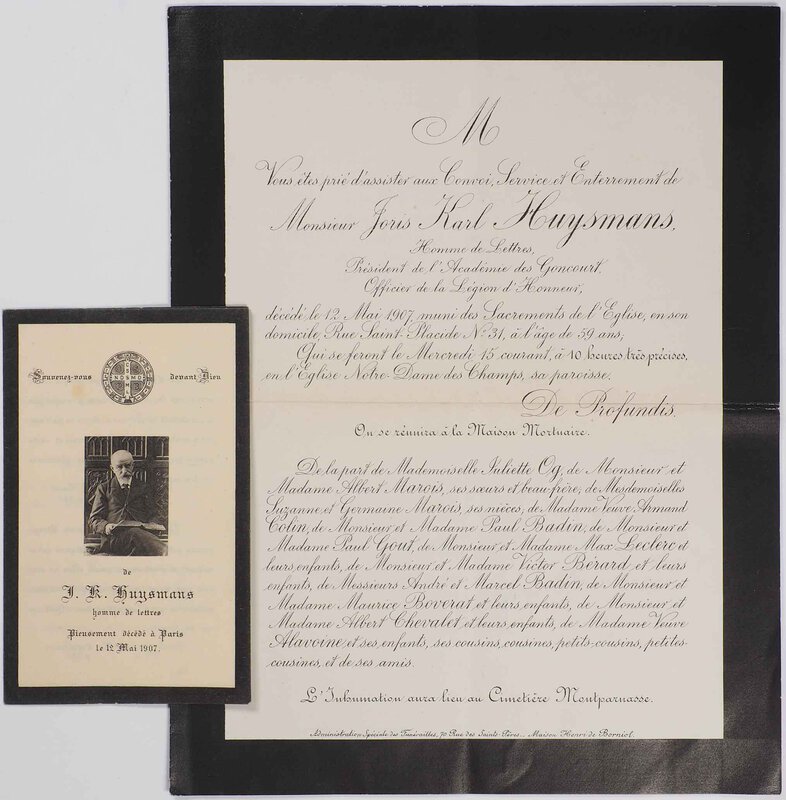 Souvenez-vous devant Dieu
de
J. K. Huysmans
homme de lettres
Pieusement décédé à Paris
le 12 Mai 1907.
M
Vous êtes prié d'assister aux Convoi, Service et Enterrement de
Monsieur Joris Karl Huysmans,
Homme de Lettres,
Président de l'Académie des Goncourt,
Officier de la Légion d'Honneur,
décédé le 12 Mai 1907, muni des Sacrements de l'Eglise, en son
domicile, Rue Saint-Placide Nº 31, à l'âge de 59 ans;
Qui se feront le Mercredi 15 courant, à 10 heures très précises,
en l'Eglise Notre-Dame des Champs, sa paroisse.
De Profundis.
On se réunira à la Maison Mortuaire.
De la part de Mademoiselle Juliette Og, de Monsieur et
Madame Albert Marois, ses sœurs et beau-frère; de Mesdemoiselles
Suzanne et Germaine Marois, ses nièces, de Madame Veuve Armand
Colin, de Monsieur et Madame Paul Badin, de Monsieur et
Madame Paul Gout, de Monsieur et Madame Max Leclerc et
leurs enfants, de Monsieur et Madame Victor Bérard et leurs
enfants, de Messieurs André et Marcel Badin, de Monsieur et
Madame Maurice Boverat et leurs enfants, de Monsieur et
Madame Albert Chevalet et leurs enfants, de Madame Veuve
Alavoine et ses enfants, ses cousins, cousines, petits-cousins, petites-
cousines, et de ses amis.
L'Inhumation aura lieu au Cimetière Montparnasse.
Administration Spéciale des Funérailles, 70 Rue des Saints-Pères._ Maison Henri de Borniol.